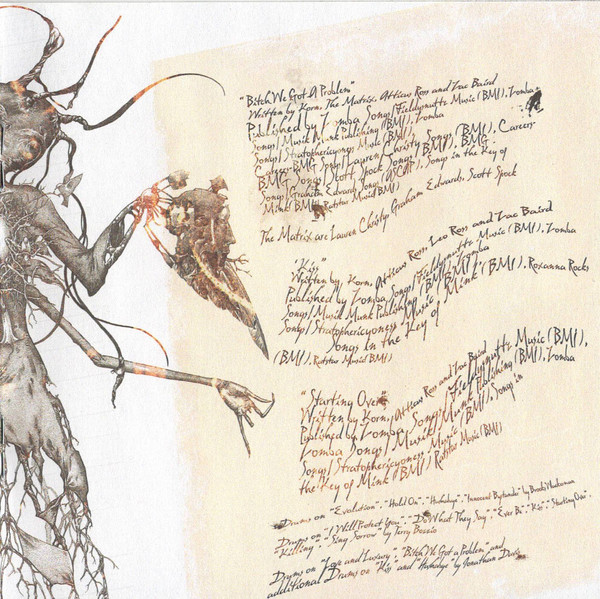 "Bitch We Got A Problem"
Written by Korn, The Matrix, Atticus Ross and Zac Baird
Published by Zomba Songs/Fieldysnuttz Music (BMI), Zomba
Songs/Musik Munk Publishing (BMI), Zomba
Songs/Stratosphericyoness Music (BMI),
Career BMG Songs/Lauren Christy Songs (BMI), Career
BMG Songs/Scott Spock Songs (BMI), BMG
Songs/Graham Edwards Songs (ASCAP), Songs in the Key of
Mink (BMI), Rotstar Music (BMI)
The Matrix are Lauren Christy Graham Edwards, Scott Spock
"Kiss"
Written by Korn, Atticus Ross, Leo Ross and Zac Baird
Published by Zomba Songs/Fieldysnuttz Music (BMI), Zomba
Songs/Musik Munk Publishing (BMI), Zomba
Songs/Stratosphericyoness Music, Mink (BMI), Roxanna Rocks
Songs in the Key of
(BMI), Rotstar Music (BMI)
"Starting Over"
Written by Korn, Atticus Ross and Zac Baird
Published by Zomba Songs/Fieldysnuttz Music (BMI),
Zomba Songs/Musik Munk Publishing (BMI), Zomba
Songs/Stratosphericyoness Music (BMI), Songs in
the Key of Mink (BMI) Rotstar Music (BMI)
Drums on "Evolution", "Hold On", "Hushabye", "Innocent Bystander" by Brooks Wackerman
Drums on "I Will Protect You", "Do What They Say", "Ever Be", "Kiss", "Starting Over",
"Killing", "Sing Sorrow" by Terry Bozzio
Drums on "Love and Luxury", "Bitch We Got a Problem" and
additional Drums on "Kiss" and "Hushabye" by Jonathan Davis